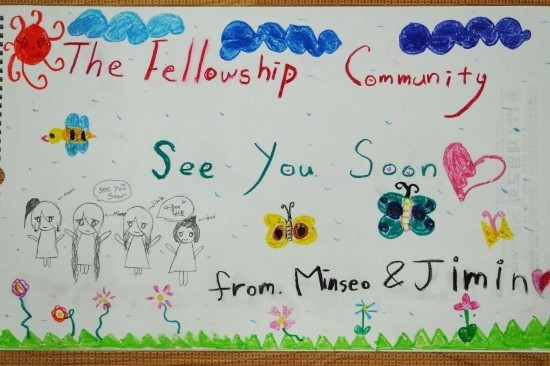 The Fellowship Community
See You Soon
See You
Soon!
from. Minseo & Jimin